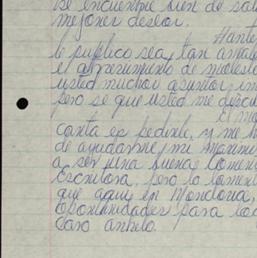 se encuentre bien de sal
mejores deseos.
Hante
le publico sea tan amabl
el atrevimiento de molesta
usted muchos asuntos im
pero se que usted me discu
El mo
carta es pedirle, y me h
de ayudarme, mi maxim
a ser una buena coment
Escritora, pero lo lament
que aqui en Honduras,
oportunidades para tod
caro anhelo.